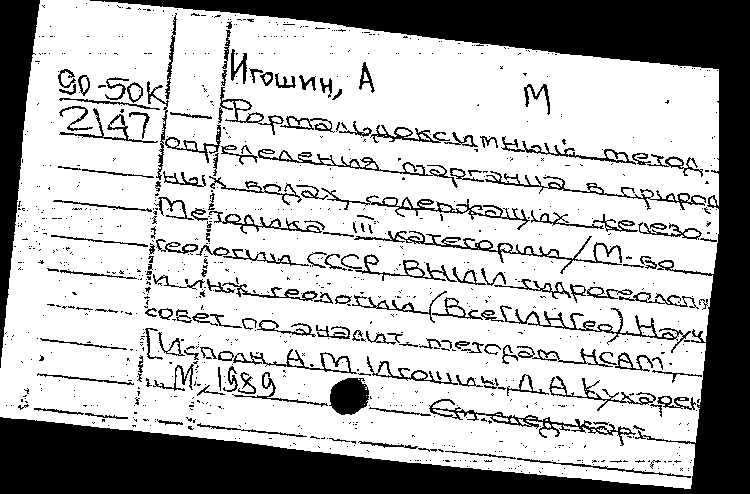 90-50к
2147
Игошин, А
М
Формальдоксимный метод
определения марганца в природ
ных водах, содержащих железо:
Методика III категории / М-во
геологии СССР, ВНИИ гидрогеологи
и инж. геологии (ВсеГИНГео) Науч
совет по аналит. методам НСАМ;
[Исполн. А. М. Игошин, Л. А. Кухарен
... М, 1989
См. след. карт.